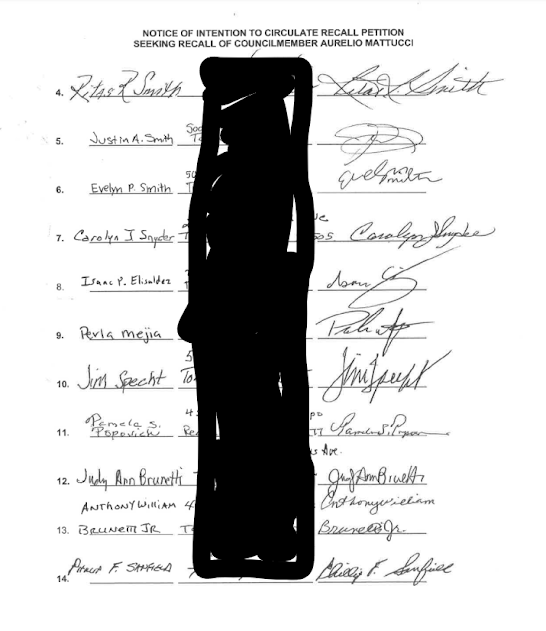 NOTICE OF INTENTION TO CIRCULATE RECALL PETITION
SEEKING RECALL OF COUNCILMEMBER AURELIO MATTUCCI
4. R Smith Smith
5. Justin A. Smith
6. Evelyn P. Smith Evelyn Smith
7. Carolyn J Snyder Carolyn J Snyder
8. Isaac P. Elisaldez
9. Perla Mejia
10. Jim Specht Jim Specht
Pamela S.
11. Popovich Pamela S.
Ave.
12. Judy Ann Brunetti Judy Ann Brunetti
ANTHONY WILLIAM Anthony William
13. BRUNETTI JR Brunetti Jr.
14. F. SANFIELD Phillip F. Sanfield